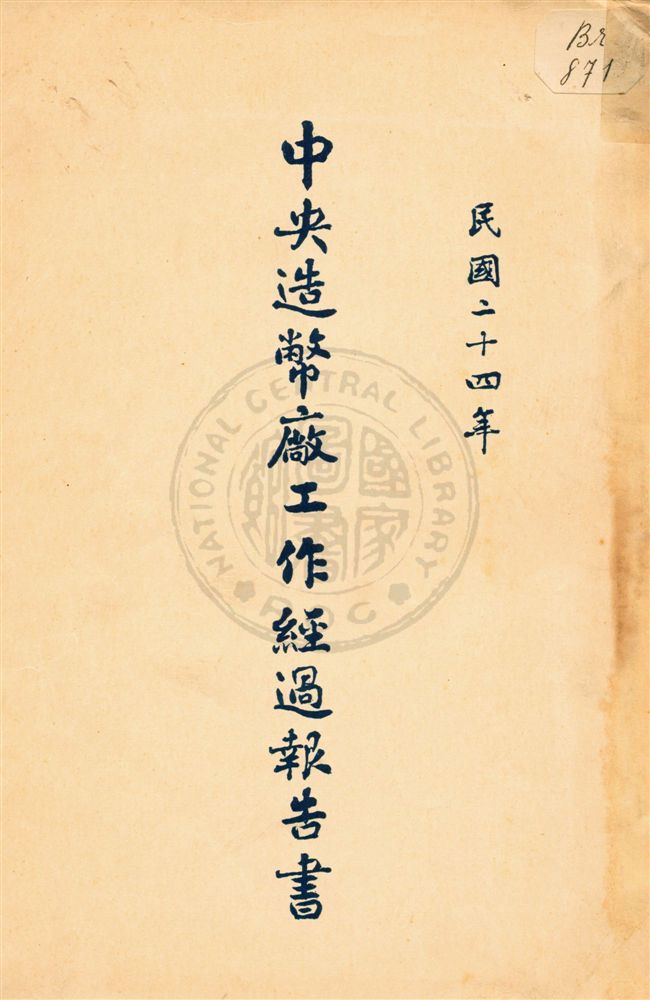 民國二十四年
中央造幣廠工作經過報告書
871
NATIONAL CENTRAL LIBRARY
ROC
國家圖書館